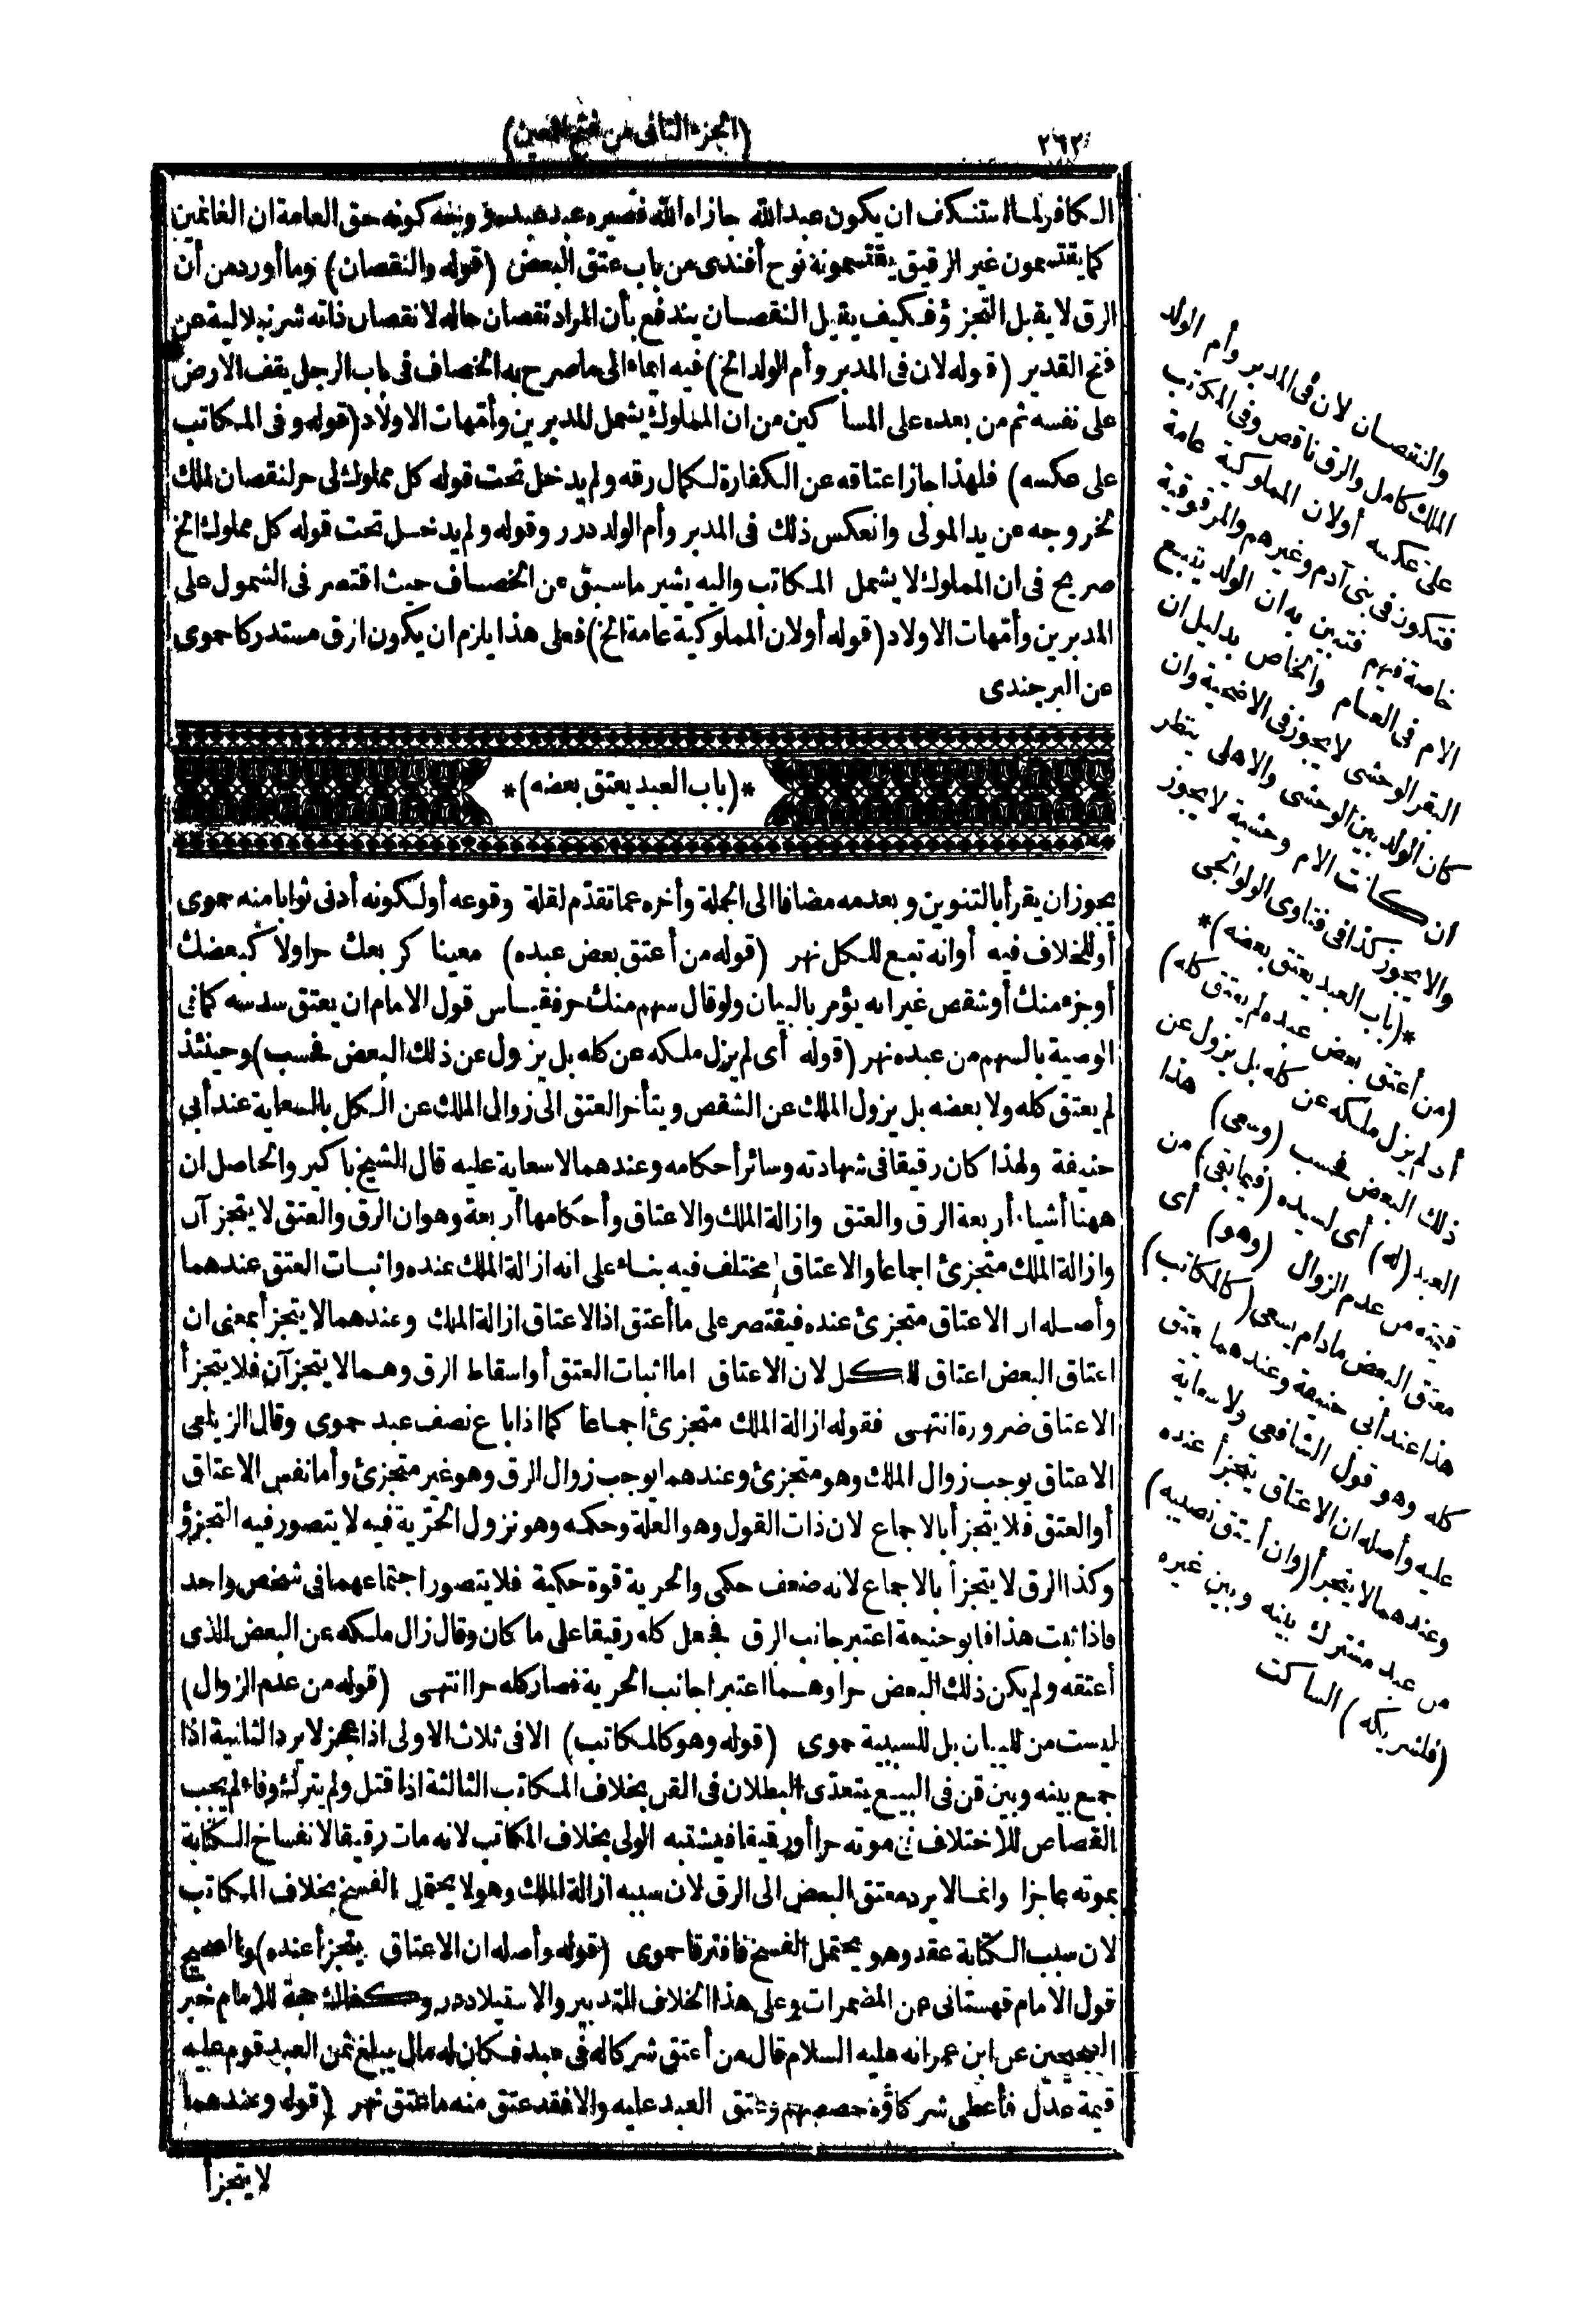 ٢٦٢
(الجزء الثانى من فتح المعين)
الكافر لما استنكف ان يكون عبد الله جازاه الله فصيره عبد عبيده ووجه كونه حق العامة ان الغانمين
كما يقتسمون غير الرقيق يقتسمونه نوح أفندى من باب عتق البعض (قوله والنقصان) وما أورد من أن
الرق لا يقبل التجزؤ فكيف يقبل النقصان يندفع بأن المراد نقصان حاله لا نقصان ذاته شرنبلالية عن
فتح القدير (قوله لان فى المدبر وأم الولد الخ) فيه ايماء الى ما صرح به الخصاف فى باب الرجل يقف الارض
على نفسه ثم من بعده على المساكين من ان المملوك يشمل المدبرين وأمهات الاولاد (قوله وفى المكاتب
على عكسه) فلهذا جاز اعتاقه عن الكفارة لكمال رقه ولم يدخل تحت قوله كل مملوك لى حر لنقصان الملك
لخروجه عن يد المولى وانعكس ذلك فى المدبر وأم الولد درر وقوله ولم يدخل تحت قوله كل مملوك الخ
صريح فى ان المملوك لا يشمل المكاتب واليه يشير ما سبق عن الخصاف حيث اقتصر فى الشمول على
المدبرين وأمهات الاولاد (قوله أولان المملوكية عامة الخ) فعلى هذا يلزم ان يكون الرق مستدركا حموى
عن البرجندى
*(باب العبد يعتق بعضه)*
يجوز ان يقرأ بالتنوين وبعدمه مضافا الى الجملة وأخره عما تقدم لقلة وقوعه أولكونه أدنى ثوابا منه حموى
أوللخلاف فيه أوانه تبع للكل نهر (قوله من أعتق بعض عبده) معينا كربعك حر اولا كبعضك
أوجزء منك أوشقص غير انه يؤمر بالبيان ولو قال سهم منك حر فقياس قول الامام ان يعتق سدسه كما فى
الوصية بالسهم من عبده نهر (قوله أى لم يزل ملكه عن كله بل يزول عن ذلك البعض فحسب) وحينئذ
لم يعتق كله ولا بعضه بل يزول الملك عن الشقص ويتأخر العتق الى زوال الملك عن الكل بالسعاية عند أبى
حنيفة ولهذا كان رقيقا فى شهادته وسائر أحكامه وعندهما لا سعاية عليه قال الشيخ باكير والحاصل ان
ههنا أشياء أربعة الرق والعتق وازالة الملك والاعتاق وأحكامها أربعة وهو ان الرق والعتق لا يتجزآن
وازالة الملك متجزئ اجماعا والاعتاق مختلف فيه بناء على انه ازالة الملك عنده واثبات العتق عندهما
وأصله ان الاعتاق متجزئ عنده فيقتصر على ما أعتق اذ الاعتاق ازالة الملك وعندهما لا يتجزأ بمعنى ان
اعتاق البعض اعتاق للكل لان الاعتاق اما اثبات العتق أواسقاط الرق وهما لا يتجزآن فلا يتجزأ
الاعتاق ضرورة انتهى فقوله ازالة الملك متجزئ اجماعا كما اذا باع نصف عبد حموى وقال الزيلعى
الاعتاق يوجب زوال الملك وهو متجزئ وعندهما يوجب زوال الرق وهو غير متجزئ وأما نفس الاعتاق
أو العتق فلا يتجزأ بالاجماع لان ذات القول وهو العلة وحكمه وهو نزول الحرية فيه لا يتصور فيه التجزؤ
وكذا الرق لا يتجزأ بالاجماع لانه ضعف حكمى والحرية قوة حكمية فلا يتصور اجتماعهما فى شخص واحد
فاذا ثبت هذا فابو حنيفة اعتبر جانب الرق فجعل كله رقيقا على ما كان وقال زال ملكه عن البعض الذى
أعتقه ولم يكن ذلك البعض حرا وهما اعتبرا جانب الحرية فصار كله حرا انتهى (قوله من عدم الزوال)
ليست من للبيان بل للسببية حموى (قوله وهو كالمكاتب) الا فى ثلاث الاولى اذا عجز لا يرد الثانية اذا
جمع بينه وبين قن فى البيع يتعدى البطلان فى القن بخلاف المكاتب الثالثة اذا قتل ولم يترك وفاء لم يجب
القصاص للاختلاف فى موته حرا أو رقيقا فيشتبه الولى بخلاف المكاتب لانه مات رقيقا لانفساخ الكتابة
بموته عاجزا وانما لا يرد معتق البعض الى الرق لان سببه ازالة الملك وهو لا يحتمل الفسخ بخلاف المكاتب
لان سبب الكتابة عقد وهو يحتمل الفسخ فافترقا حموى (قوله وأصله ان الاعتاق يتجزأ عنده) والصحيح
قول الامام قهستانى عن المضمرات وعلى هذا الخلاف التدبير والاستيلاد درر وكفاك حجة للامام خبر
الصحيحين عن ابن عمر انه عليه السلام قال من أعتق شركا له فى عبد فكان له مال يبلغ ثمن العبد قوم عليه
قيمة عدل فأعطى شركاؤه حصصهم وعتق العبد عليه والا فقد عتق منه ما عتق نهر (قوله وعندهما
لا يتجزأ
والنقصان لان فى المدبر وأم الولد
الملك كامل والرق ناقص وفى المكاتب
على عكسه أولان المملوكية عامة
فتكون فى بنى آدم وغيرهم والمرقوقية
خاصة فيهم فتبين به ان الولد يتبع
الام فى العام والخاص بدليل ان
البقر الوحشى لا يجوز فى الاضحية وان
كان الولد بين الوحشى والاهلى ينظر
ان كانت الام وحشية لا يجوز
والا يجوز كذا فى فتاوى الولوالجى
*(باب العبد يعتق بعضه)*
(من أعتق بعض عبده لم يعتق كله)
أى لم يزل ملكه عن كله بل يزول عن
ذلك البعض فحسب (وسعى) هذا
العبد (له) أى لسيده (فيما بقى) من
قيمته من عدم الزوال (وهو) أى
معتق البعض مادام يسعى (كالمكاتب)
هذا عند أبى حنيفة وعندهما يعتق
كله وهو قول الشافعى ولا سعاية
عليه وأصله ان الاعتاق يتجزأ عنده
وعندهما لا يتجزأ (وان أعتق نصيبه)
من عبد مشترك بينه وبين غيره
(فلشريكه) الساكت